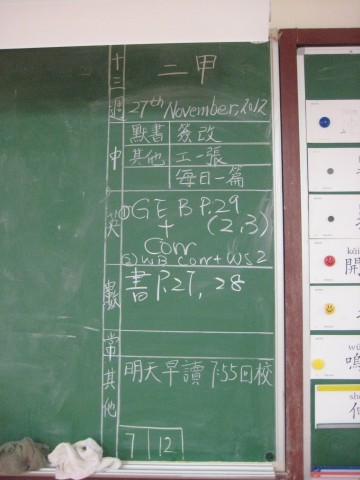 十三週
二甲
27th November, 2012
中
默書 簽改
其他 工一張
每日一篇
英
① GE B P.29
+ (2,3)
Corr
② WB corr + WS 2
數
書 P.27, 28
常
其他
明天早讀 7:55回校
7 12
開
嗚